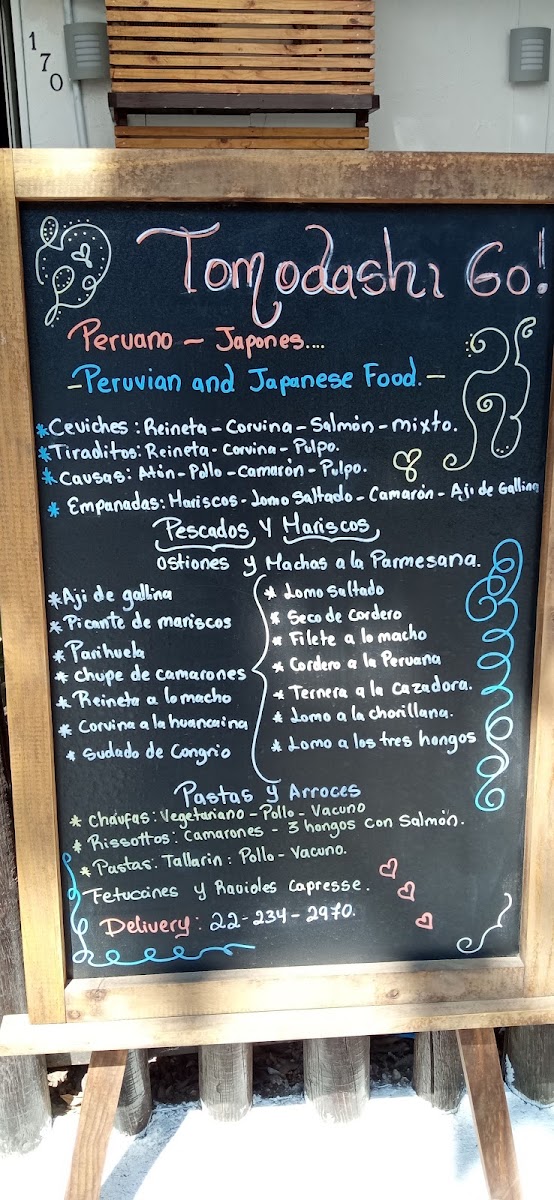 170
Tomodashi Go!
Peruano ~ Japones....
-Peruvian and Japanese Food.-
*Ceviches: Reineta - Corvina - Salmón - mixto.
*Tiraditos: Reineta - Corvina - Pulpo.
*Causas: Atún - Pollo - Camarón - Pulpo.
* Empanadas: Mariscos - Lomo Saltado - Camarón - Aji de Gallina
Pescados y Mariscos
Ostiones y Machas a la Parmesana.
*Aji de gallina
* Picante de mariscos
* Parihuela
* chupe de camarones
* Reineta a lo macho
* Corvina a la huancaina
* Sudado de Congrio
* Lomo Saltado
* Seco de Cordero
* Filete a lo macho
* Cordero a la Peruana
* Ternera a la cazadora.
* Lomo a la chorillana.
* Lomo a los tres hongos
Pastas y Arroces
* Chaufas: Vegetariano - Pollo - Vacuno
* Rissottos: Camarones - 3 hongos con Salmón.
* Pastas: Tallarin: Pollo - Vacuno.
Fetuccines y Ravioles Capresse.
Delivery: 22-234-2970.